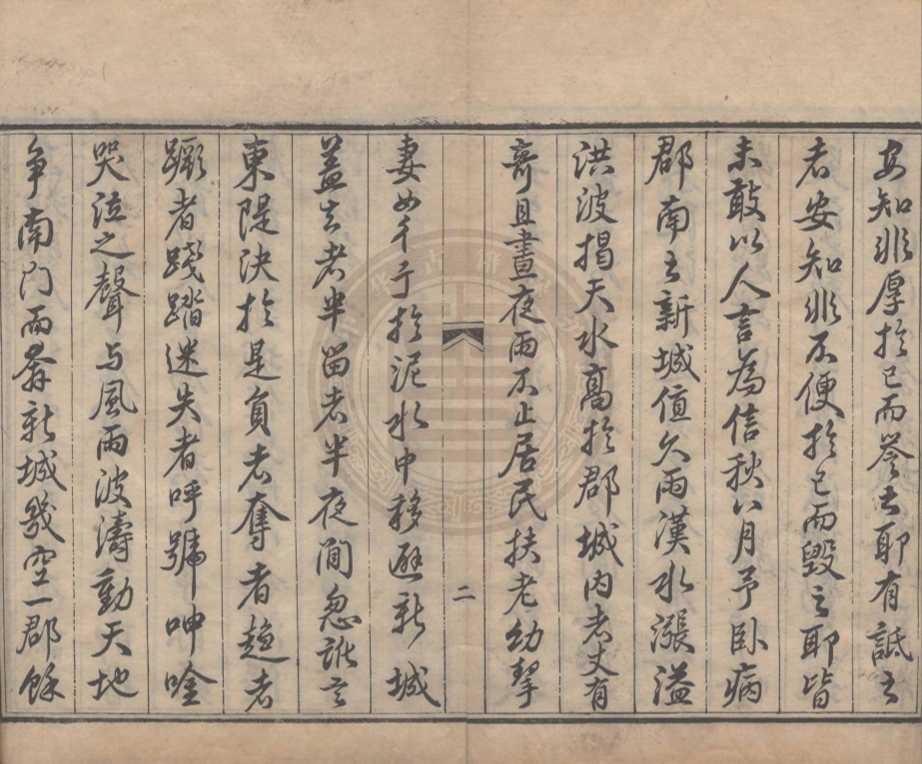 安知非厚於已而譽之耶有詆之
者安知非不便於已而毀之耶皆
未敢以人言為信秋八月予卧病
郡南之新城值久雨漢水漲溢
洪波揭天水高於郡城内者丈有
奇且晝夜雨不止居民扶老幼挈
二
妻女于于於泥水中移避新城
蓋去者半留者半夜間忽訛言
東隄決於是負者奪者趨者
蹶者踐踏迷失者呼號呻唫
哭泣之聲与風雨波濤動天地
争南门而奔新城幾空一郡餘